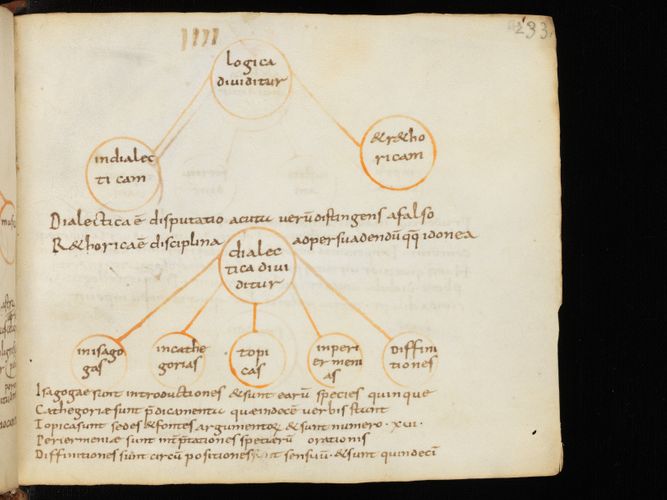 233
logica
dividitur
indialec
ticam
& r&ho
ricam
Dialectica ē disputatio acutu verū distingens afalso
R&horica ē disciplina adpersuadendū qq idonea
dialec
tica divi
ditur
inisago
gas
incathe
gorias
topi
cas
inperi
ermeni
as
diffini
tiones
Isagogae sunt introductiones & sunt earū species quinque
Cathegoriae sunt p̄dicamentu quein decē verbis stunt
Topica sunt sedes & fontes argumentoꝝ & sunt numero · xvi ·
Periermeniae sunt int̄p̄tationes specierū orationis
Diffinitiones sunt circū positiones sensuū · & sunt quindecī